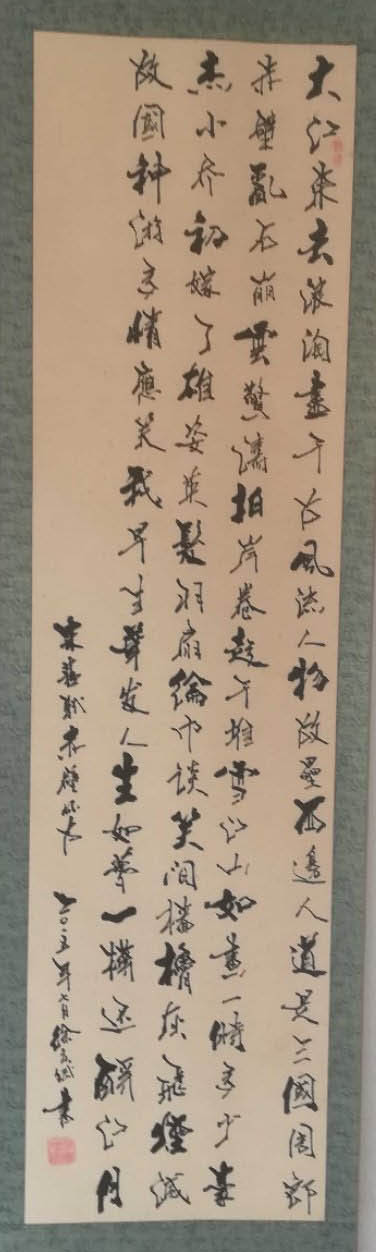 大江東去浪淘盡千古風流人物故壘西邊人道是三國周郎
赤壁亂石崩雲驚濤拍岸卷起千堆雪江山如畫一時多少豪
杰小乔初嫁了雄姿英髮羽扇綸巾談笑間檣櫓灰飛煙滅
故國神游多情應笑我早生華发人生如夢一樽还酹江月
宋蘇軾赤壁懷古 二〇一五年七月徐書